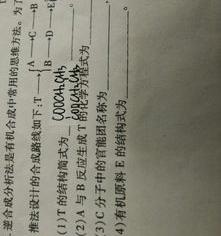 逆合成分析法是有机合成中常用的思维方法。为了
推法设计的合成路线如下:T→{A→C→B
B→D→E
(1)T的结构简式为COOCH₂CH₃
COOCH₂CH₃
(2)A与B反应生成T的化学方程式为
(3)C分子中的官能团名称为
4)有机原料E的结构式为 。